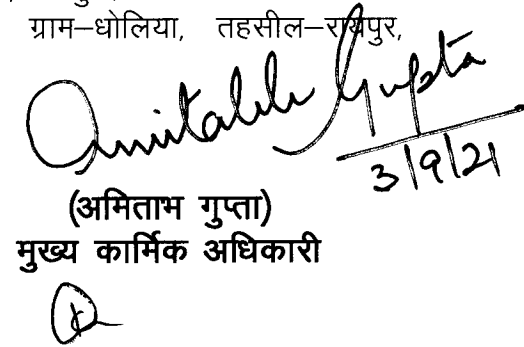 ग्राम–धोलिया, तहसील–रायपुर,
Amitabh Gupta
3/9/21
(अमिताभ गुप्ता)
मुख्य कार्मिक अधिकारी